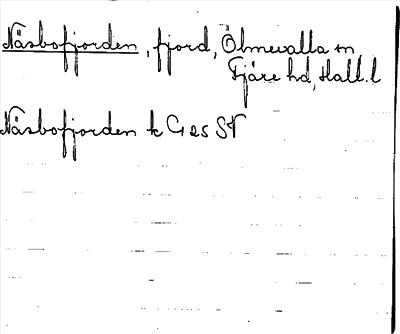 Näsbofjorden, fjord, Ölmevalla sn
Fjäre hd, Hall. l
Näsbofjorden k G 25 SV